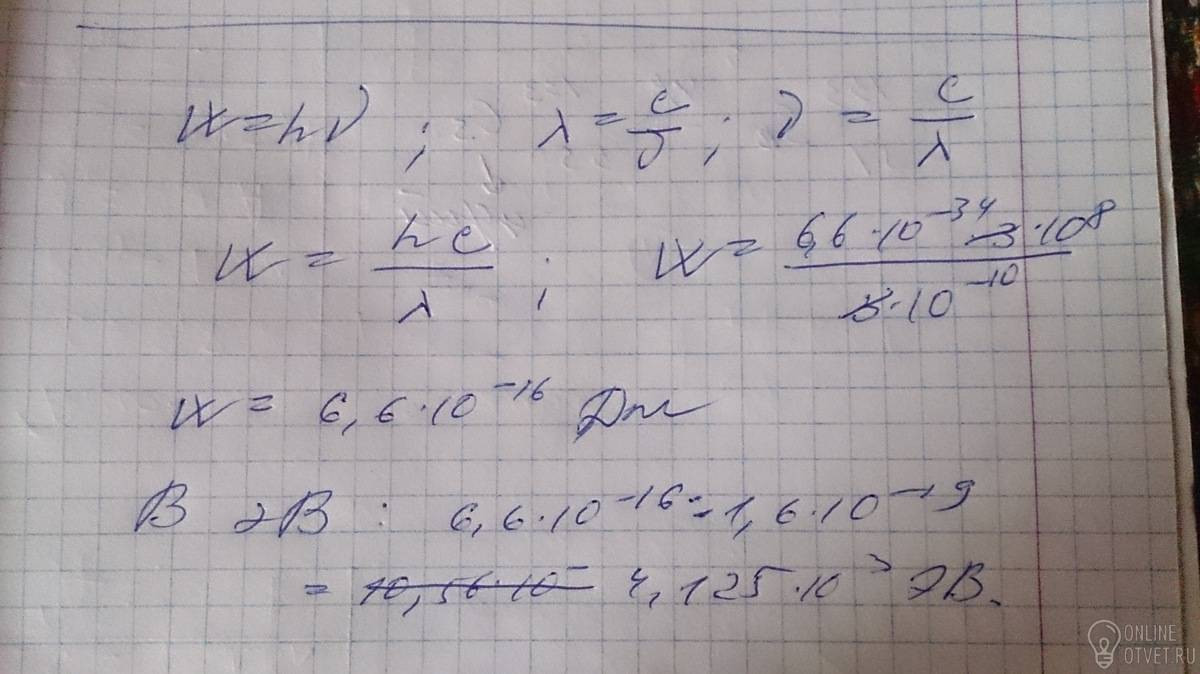 W = hν ; λ = c/ν ; ν = c/λ
W = hc/λ ; W = 6,6·10⁻³⁴·3·10⁸/3·10⁻¹⁰
W = 6,6·10⁻¹⁶ Дж
В эВ : 6,6·10⁻¹⁶ : 1,6·10⁻¹⁹
= 10,56·10⁻ 4,125·10³ эВ.
ONLINE
OTVET.RU